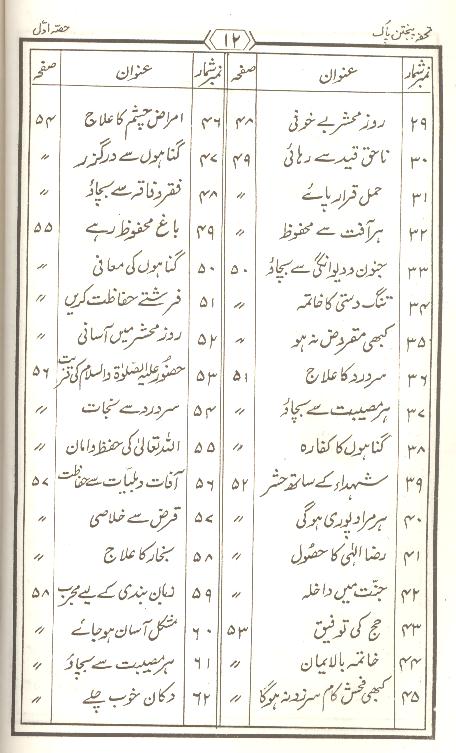 تحفہ پنجتن پاک ۱۲ حصہ اوّل
نمبر شمار عنوان صفحہ نمبر شمار عنوان صفحہ
۲۹ روز محشر بے خوفی ۴۸ ۴۶ امراض چشم کا علاج ۵۴
۳۰ ناحق قید سے رہائی ۴۹ ۴۷ گناہوں سے درگزر 〃
۳۱ حمل قرار پائے 〃 ۴۸ فقر و فاقہ سے بچاؤ 〃
۳۲ ہر آفت سے محفوظ 〃 ۴۹ باغ محفوظ رہے ۵۵
۳۳ جنون و دیوانگی سے بچاؤ ۵۰ ۵۰ گناہوں کی معافی 〃
۳۴ تنگ دستی کا خاتمہ 〃 ۵۱ فرشتے حفاظت کریں 〃
۳۵ کبھی مقروض نہ ہو 〃 ۵۲ روز محشر میں آسانی 〃
۳۶ سردرد کا علاج ۵۱ ۵۳ حضور علیہ الصلوٰۃ والسلام کی قربت ۵۶
۳۷ ہر مصیبت سے بچاؤ 〃 ۵۴ سردرد سے نجات 〃
۳۸ گناہوں کا کفارہ 〃 ۵۵ اللہ تعالیٰ کی حفظ و امان 〃
۳۹ شہداء کے ساتھ حشر ۵۲ ۵۶ آفات و بلیات سے حفاظت ۵۷
۴۰ ہر مراد پوری ہوگی 〃 ۵۷ قرض سے خلاصی 〃
۴۱ رضا الٰہی کا حصول 〃 ۵۸ بخار کا علاج 〃
۴۲ جنّت میں داخلہ 〃 ۵۹ زبان بندی کے لیے مجرب ۵۸
۴۳ حج کی توفیق ۵۳ ۶۰ مشکل آسان ہو جائے 〃
۴۴ خاتمہ بالایمان 〃 ۶۱ ہر مصیبت سے بچاؤ 〃
۴۵ کبھی فحش کام سرزد نہ ہوگا 〃 ۶۲ دکان خوب چلے 〃